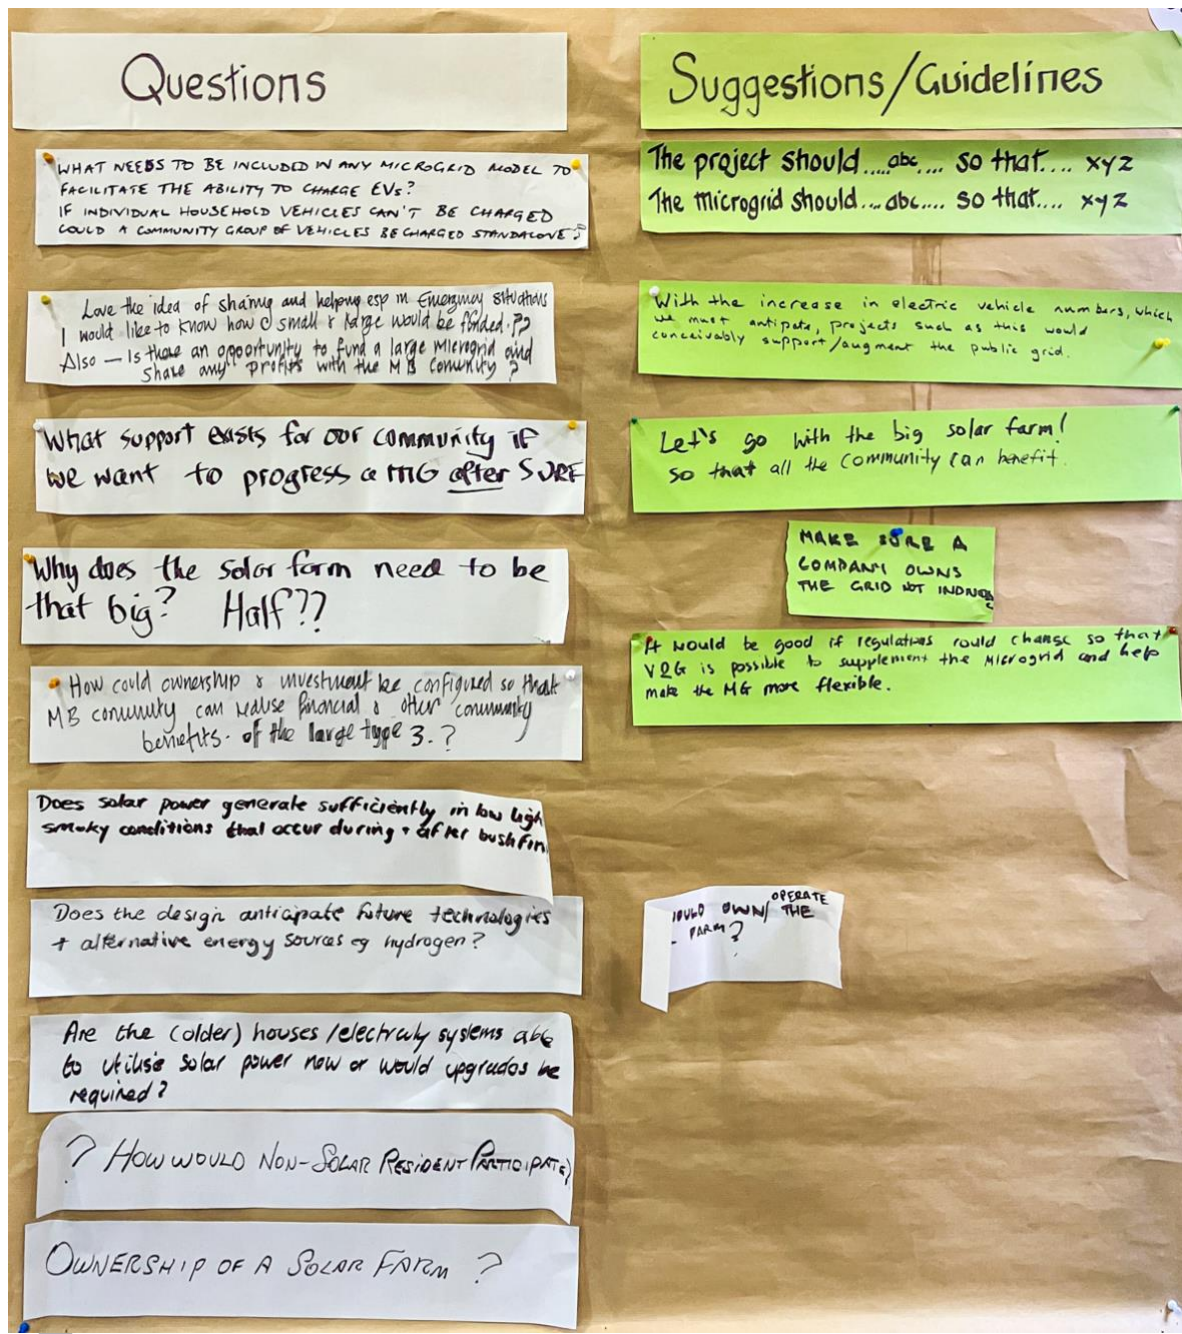 Questions
WHAT NEEDS TO BE INCLUDED IN ANY MICROGRID MODEL TO
FACILITATE THE ABILITY TO CHARGE EVs?
IF INDIVIDUAL HOUSEHOLD VEHICLES CAN'T BE CHARGED
COULD A COMMUNITY GROUP OF VEHICLES BE CHARGED STANDALONE?
Love the idea of sharing and helping esp in Emergency situations
I would like to know how small & large would be funded.??
Also — Is there an opportunity to fund a large Microgrid and
share any profits with the MB Comunity?
What support exists for our community if
we want to progress a MG after SURF
Why does the solar farm need to be
that big? Half??
How could ownership & investment be configured so that
MB comunity can realise financial & other comunity
benefits. of the large type 3.?
Does solar power generate sufficiently in low ligh
smoky conditions that occur during + after bushfir
Does the design anticipate future technologies
+ alternative energy sources eg hydrogen?
Are the (older) houses/ systems able
to utilise solar power now or would upgrades be
required?
? HOW WOULD NON-SOLAR RESIDENT PARTICIPATE?
OWNERSHIP OF A SOLAR FARM ?
Suggestions/Guidelines
The project should....abc.... so that.... xyz
The microgrid should...abc.... so that.... xyz
With the increase in electric vehicle numbers, which
we must antipate, projects such as this would
conceivably support/augment the public grid.
Let's go with the big solar farm!
so that all the community can benefit.
MAKE SURE A
COMPANY OWNS
THE GRID NOT
It would be good if regulations could change so that
V2G is possible to supplement the Microgrid and help
make the MG more flexible.
OPERATE
OULD OWN/ THE
FARM?